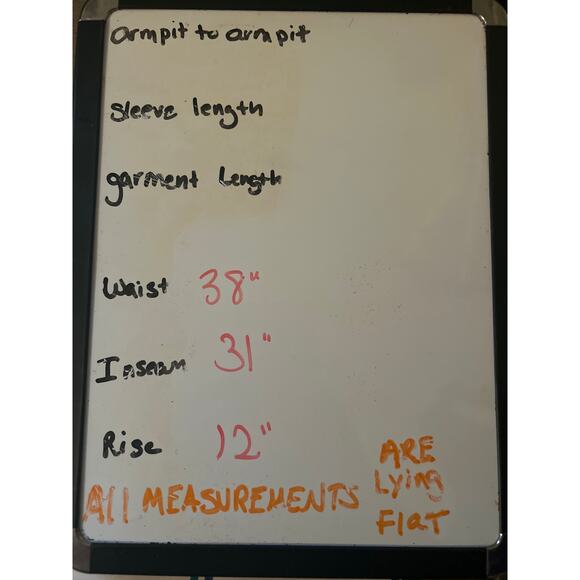 armpit to armpit
Sleeve length
garment Length
Waist 38"
Inseam 31"
Rise 12"
All MEASUREMENTS ARE
Lying
Flat